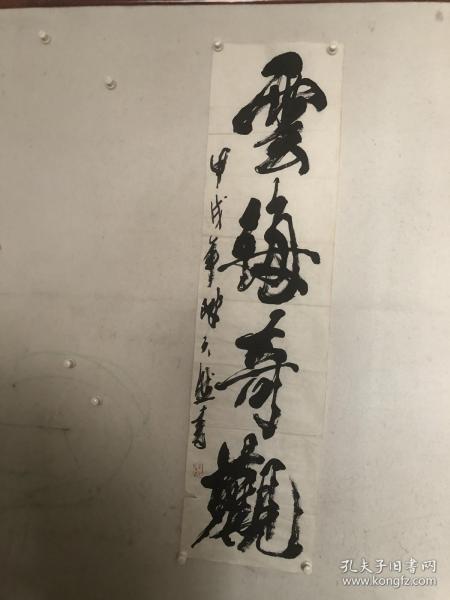 雲海奇觀
甲戌書
孔夫子旧书网
www.kongfz.com